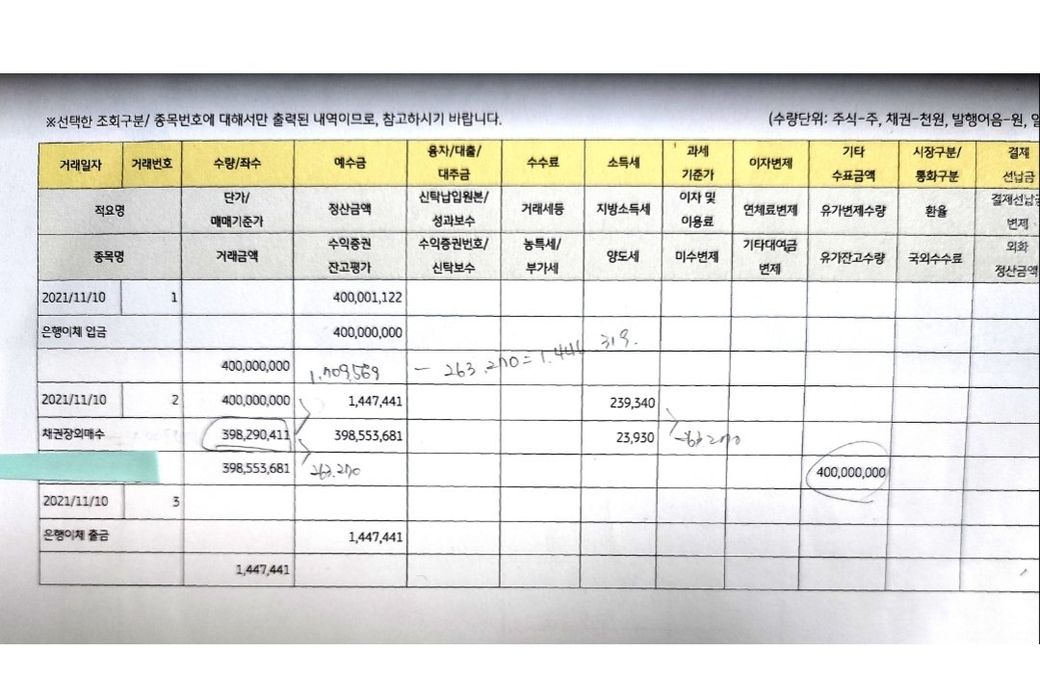 ※선택한 조회구분/ 종목번호에 대해서만 출력된 내역이므로, 참고하시기 바랍니다. (수량단위: 주식-주, 채권-천원, 발행어음-원,
거래일자 거래번호 수량/좌수 예수금 융자/대출/대주금 수수료 소득세 과세기준가 이자변제 기타수표금액 시장구분/통화구분 결제선납금
적요명 단가/매매기준가 정산금액 신탁납입원본/성과보수 거래세등 지방소득세 이자 및 이용료 연체료변제 유가변제수량 환율 결제선납금변제
종목명 거래금액 수익증권잔고평가 수익증권번호/신탁보수 농특세/부가세 양도세 미수변제 기타대여금변제 유가잔고수량 국외수수료 외화정산금액
2021/11/10 1 400,001,122
은행이체 입금 400,000,000
400,000,000 1,709,569 - 263,270 = 1,446,319.
2021/11/10 2 400,000,000 1,447,441 239,340
채권장외매수 398,290,411 398,553,681 23,930
398,553,681 263,270 400,000,000
2021/11/10 3
은행이체 출금 1,447,441
1,447,441